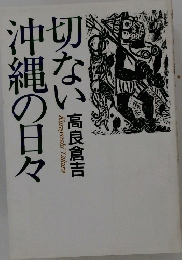 切ない
沖縄の日々
高良倉吉
Kurayoshi Takara